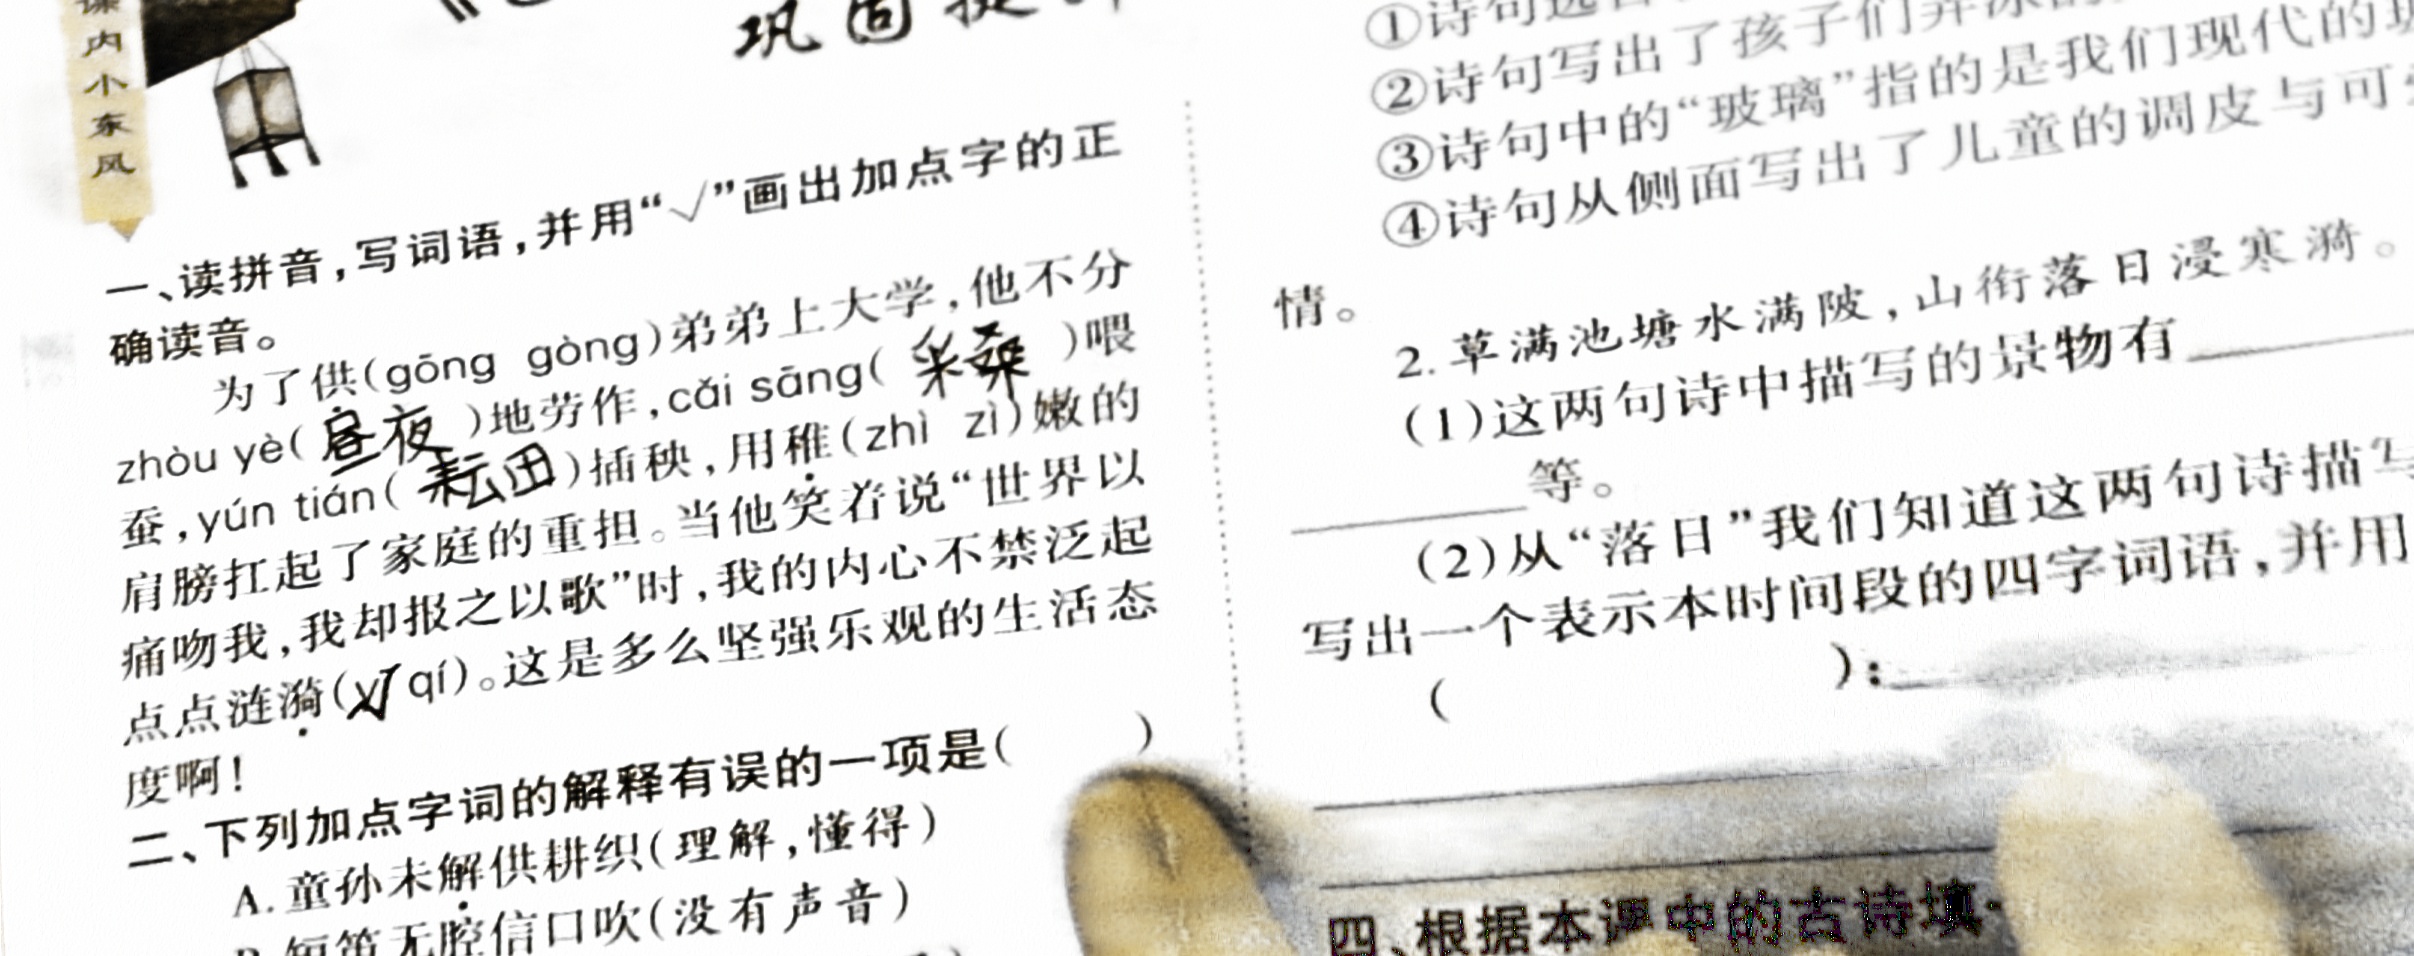 课
内
小
东
风
巩固提
一、读拼音,写词语,并用“√”画出加点字的正
确读音。
为了供(gōng gòng)弟弟上大学,他不分
zhòu yè(昼夜)地劳作,cǎi sāng(采桑)喂
蚕,yún tián(耘田)插秧,用稚(zhì zì)嫩的
肩膀扛起了家庭的重担。当他笑着说“世界以
痛吻我,我却报之以歌”时,我的内心不禁泛起
点点涟漪(yī qí)。这是多么坚强乐观的生活态
度啊!
二、下列加点字词的解释有误的一项是( )
A.童孙未解供耕织(理解,懂得)
B.短笛无腔信口吹(没有声音)
①诗句选自
②诗句写出了孩子们弄冰的
③诗句中的“玻璃”指的是我们现代的玻
④诗句从侧面写出了儿童的调皮与可爱
情。
2.草满池塘水满陂,山衔落日浸寒漪。
(1)这两句诗中描写的景物有
等。
(2)从“落日”我们知道这两句诗描写
写出一个表示本时间段的四字词语,并用
( ):
四、根据本课中的古诗填